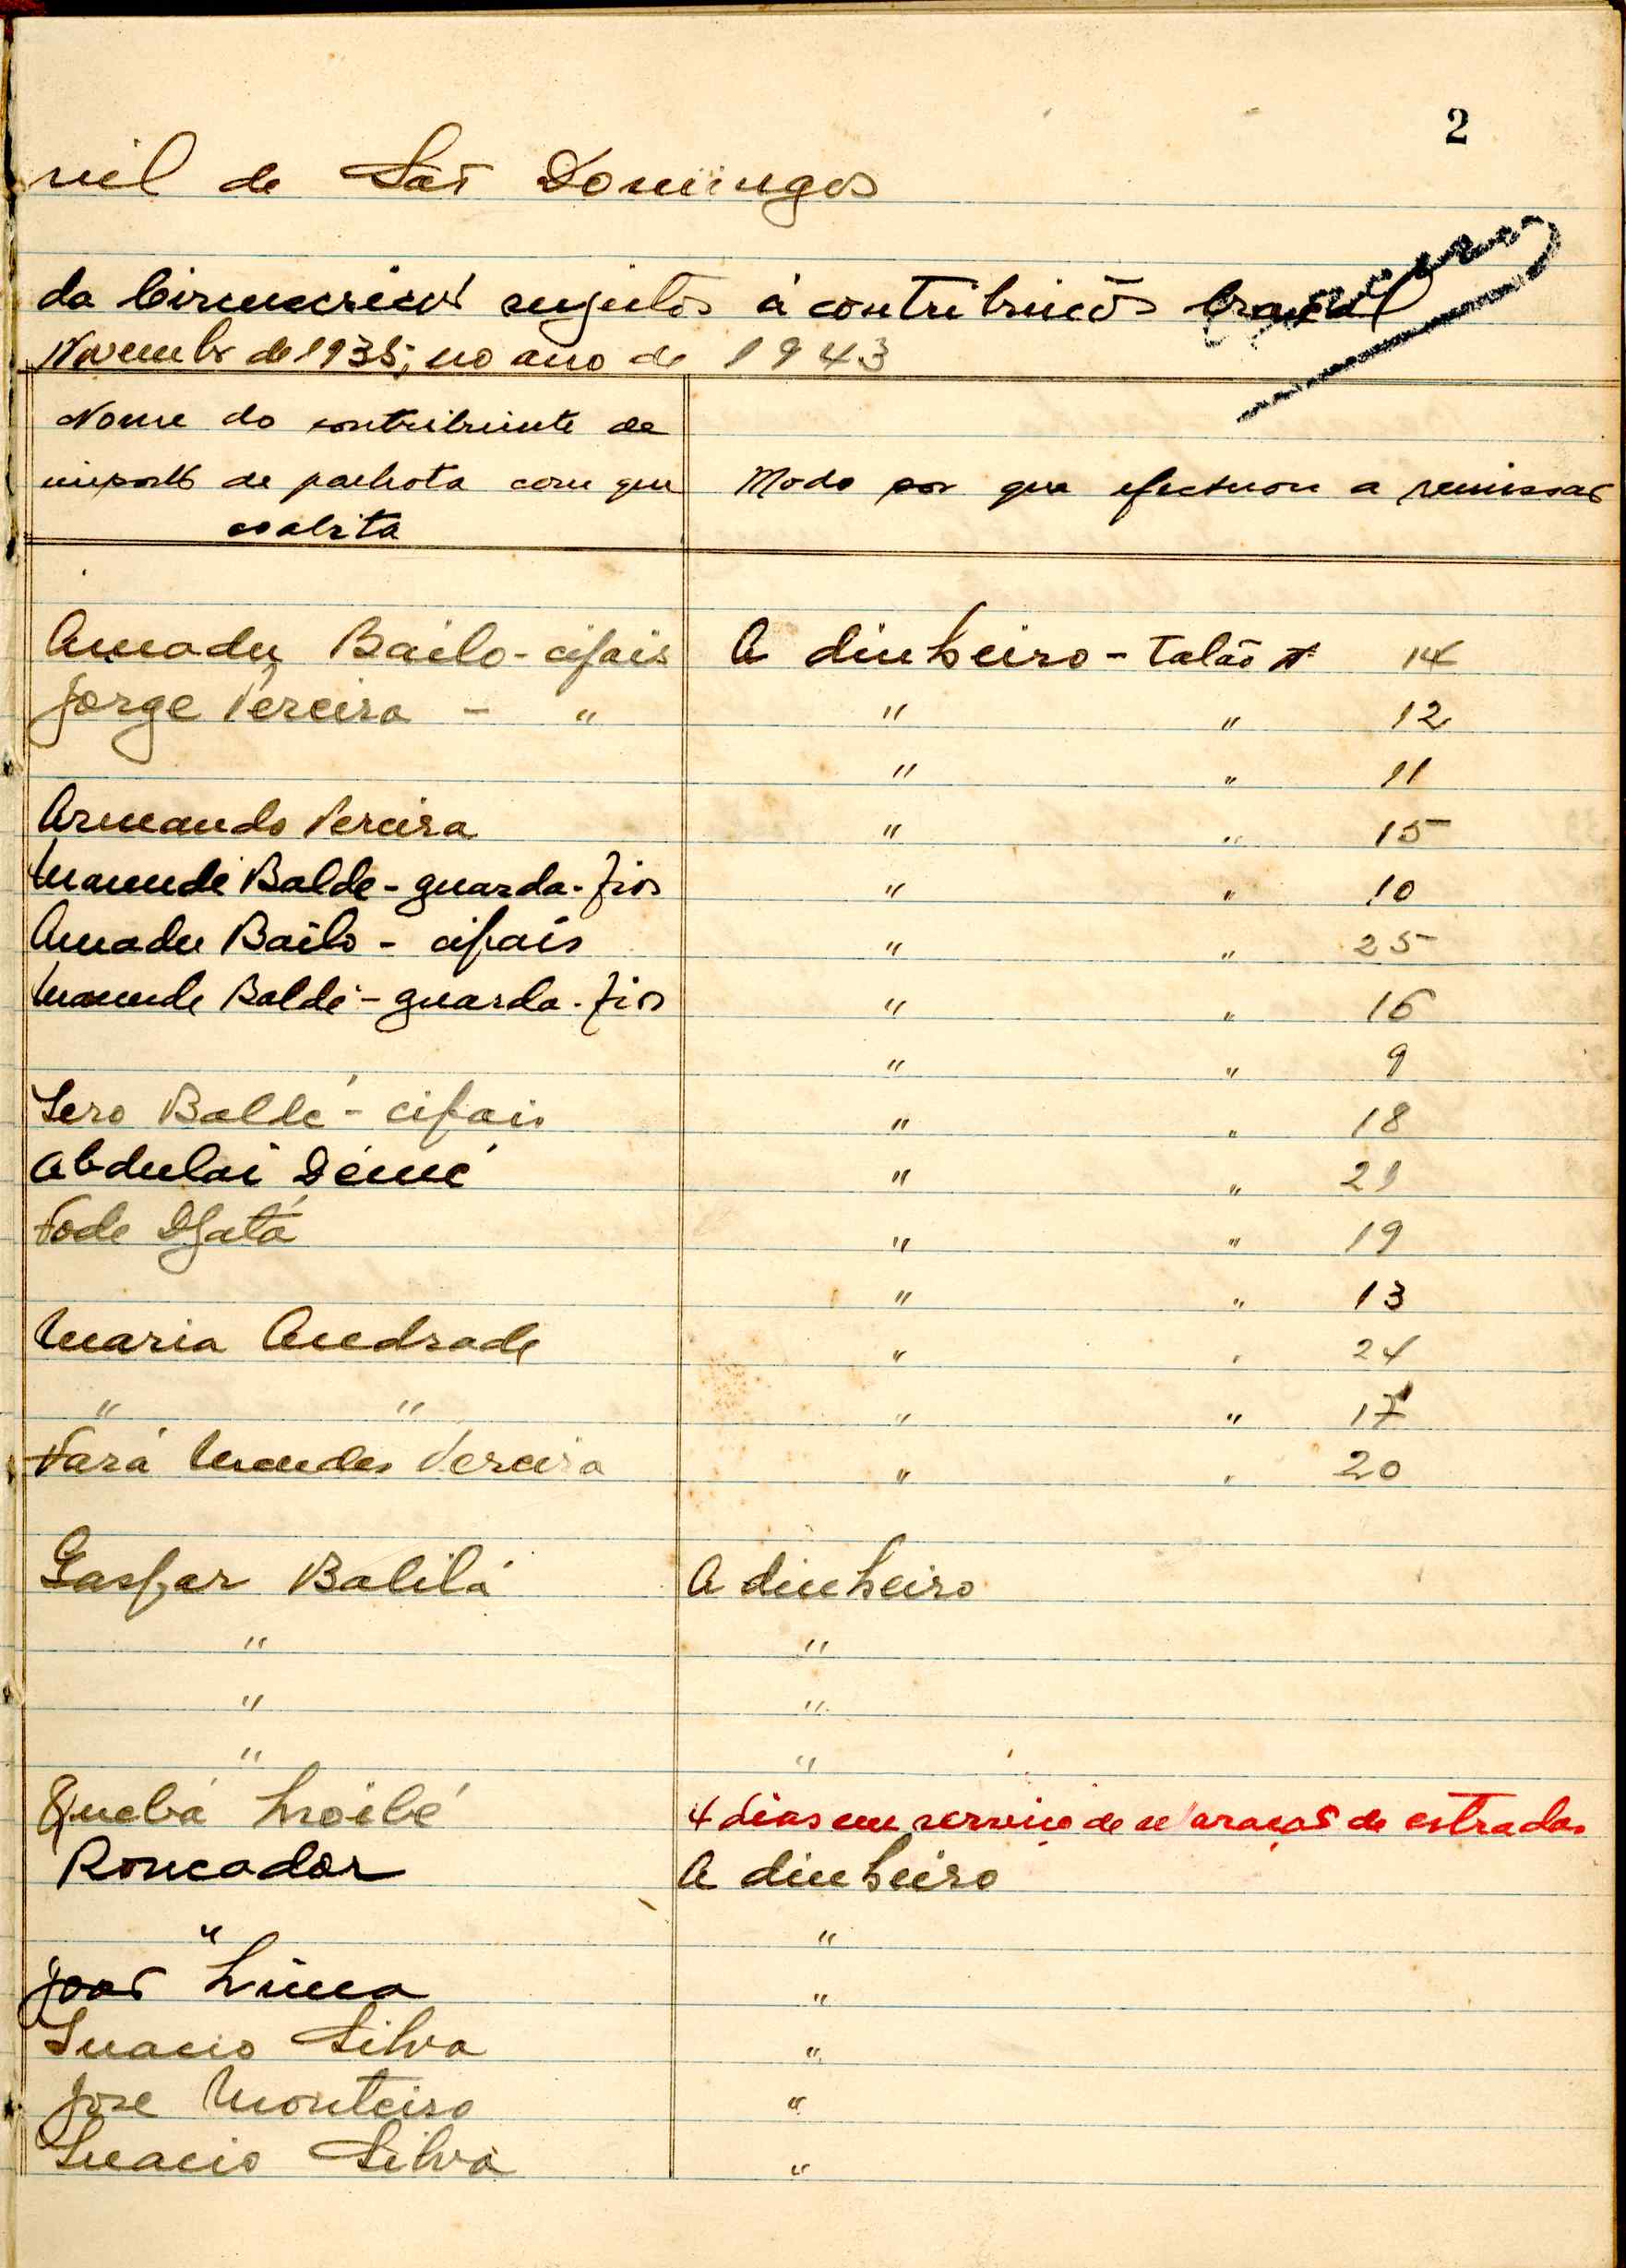 2
vil de São Domingos
da Circunscrição sujeitos á contribuição braçal
Novembro de 1935, no ano de 1943
Nome do contribuinte de
imposto de palhota com que
coabita
Modo por que efectuou a remissão
Amadu Bailo - cipais A dinheiro - Talão nº 14
Jorge Pereira - " " " 12
" " 11
Armando Pereira " " 15
Mamude Balde - guarda-fios " " 10
Amadu Bailo - cipais " " 25
Mamude Baldé - guarda-fios " " 16
" " 9
Sero Baldé - cipais " " 18
Abdulai Demé " " 21
Fode Djatá " " 19
" " 13
Maria Andrade " " 24
" " " " 17
Fará Mendes Pereira " " 20
Gaspar Balilá A dinheiro
" "
" "
" "
Quebá 4 dias em serviço de reparação de estradas
Roncador A dinheiro
" "
João Lima "
Inacio Silva "
Jose Monteiro "
Inacio Silva "